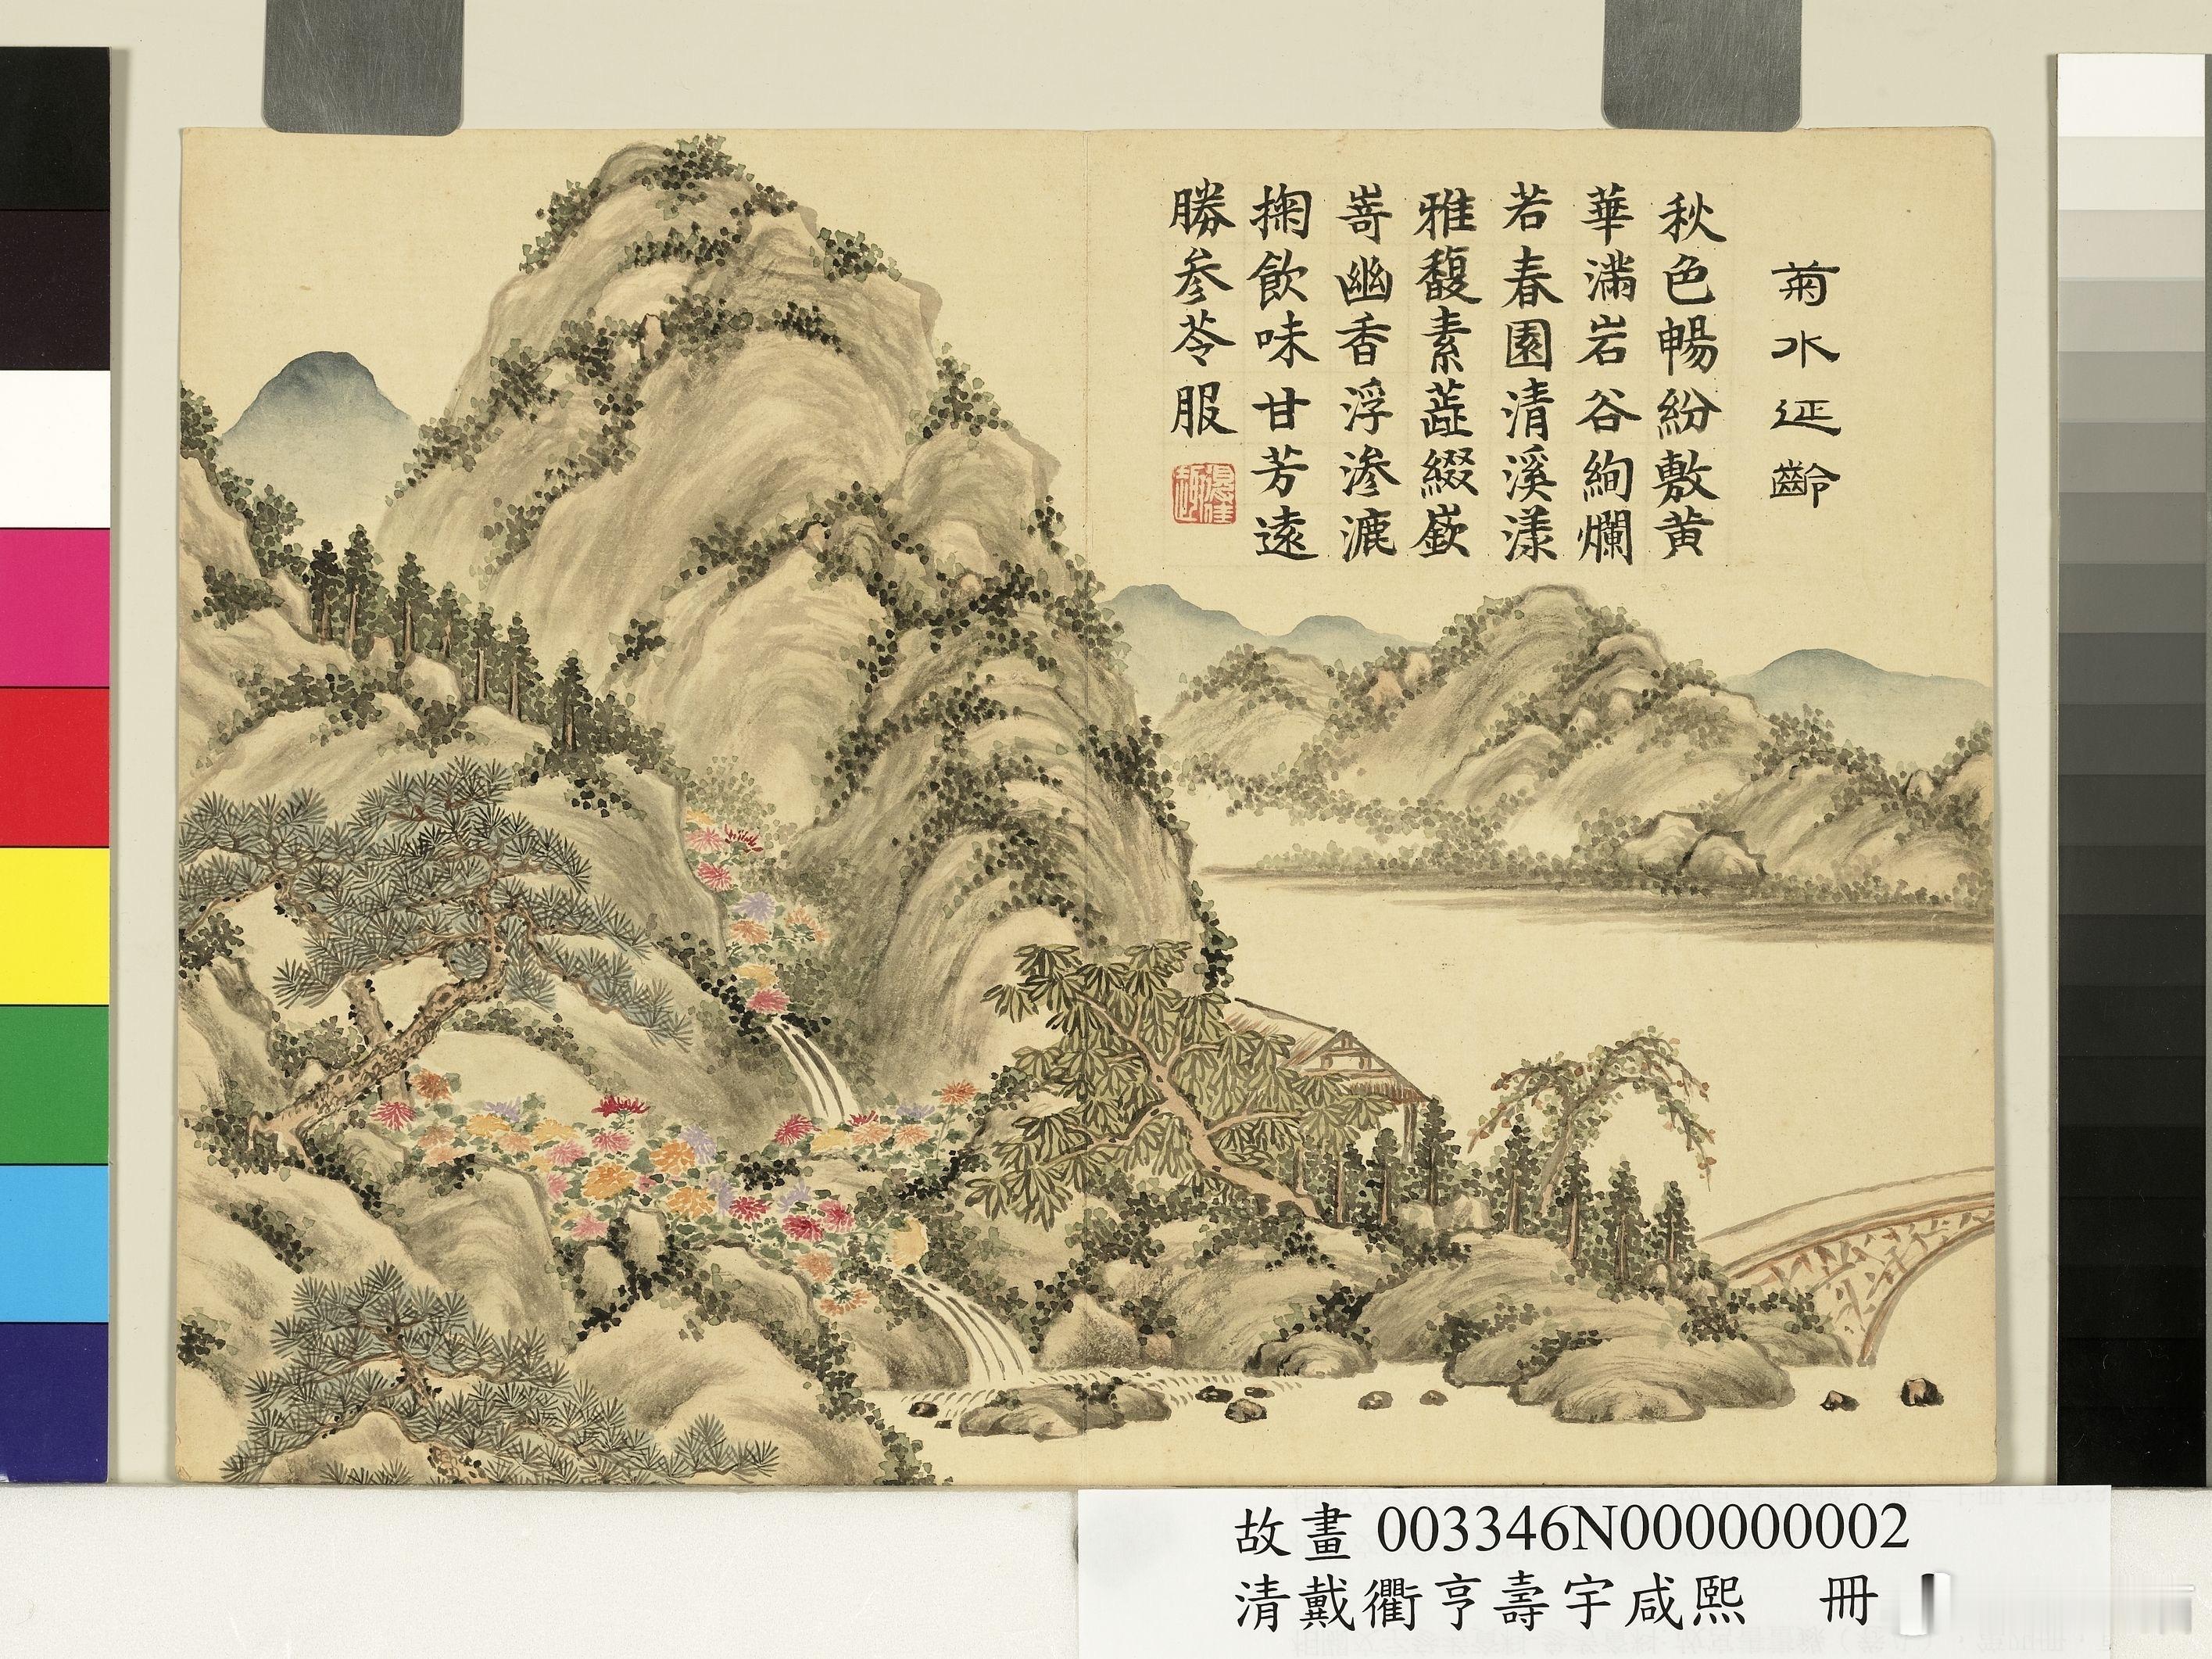 菊水延齡
秋色暢紛敷黄
華滿岩谷絢爛
若春園清溪漾
雅馥素蕋綴嶔
嵜幽香浮滲漉
掬飲味甘芳遠
勝参苓服
得佳趣
故畫 003346N000000002
清戴衢亨壽宇咸熙 冊